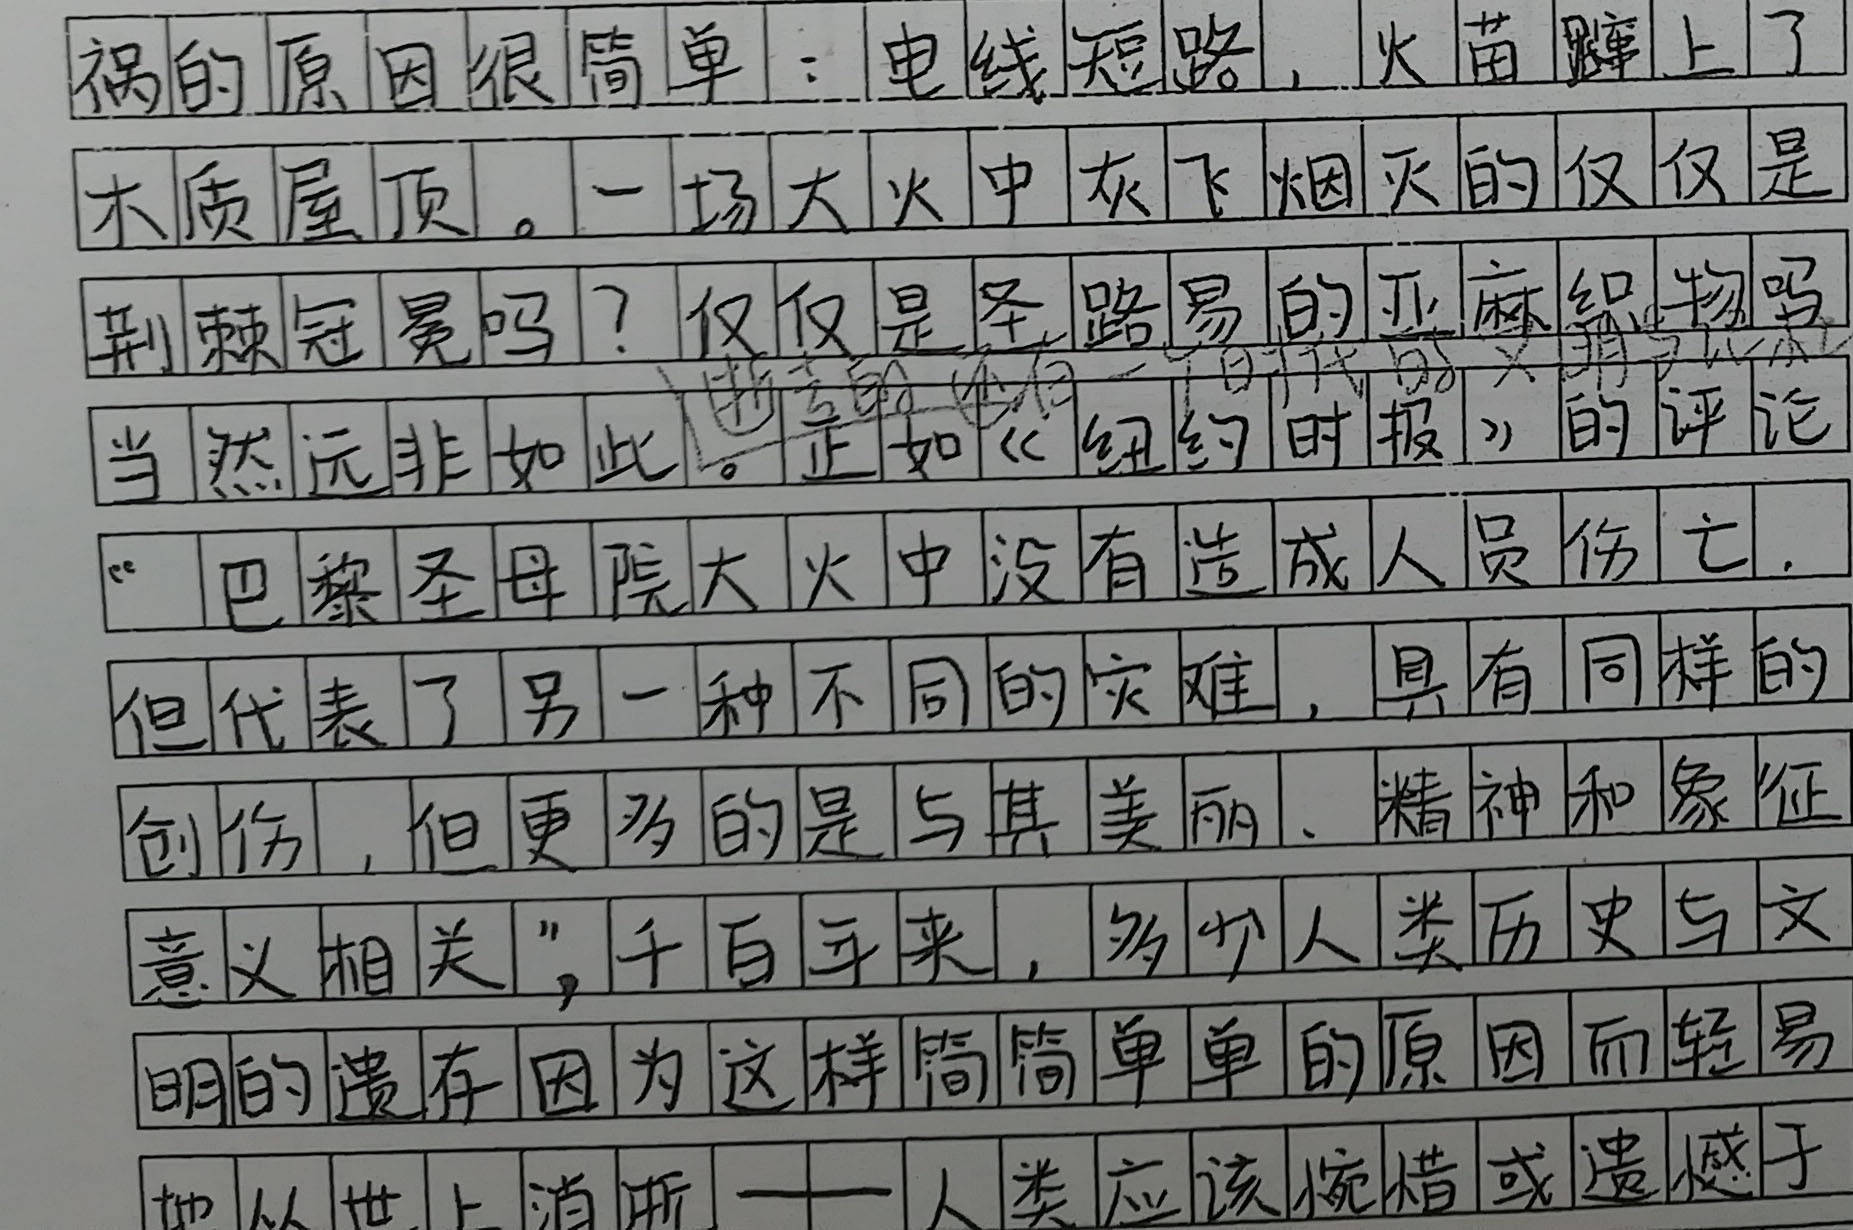 祸的原因很简单：电线短路，火苗蹿上了
木质屋顶。一场大火中灰飞烟灭的仅仅是
荆棘冠冕吗？仅仅是圣路易的亚麻织物吗
逝去的 一个时代的文明与
当然远非如此。正如《纽约时报》的评论
“巴黎圣母院大火中没有造成人员伤亡．
但代表了另一种不同的灾难，具有同样的
创伤，但更多的是与其美丽、精神和象征
意义相关”，千百年来，多少人类历史与文
明的遗存因为这样简简单单的原因而轻易
地从世上消逝——人类应该惋惜或遗憾于